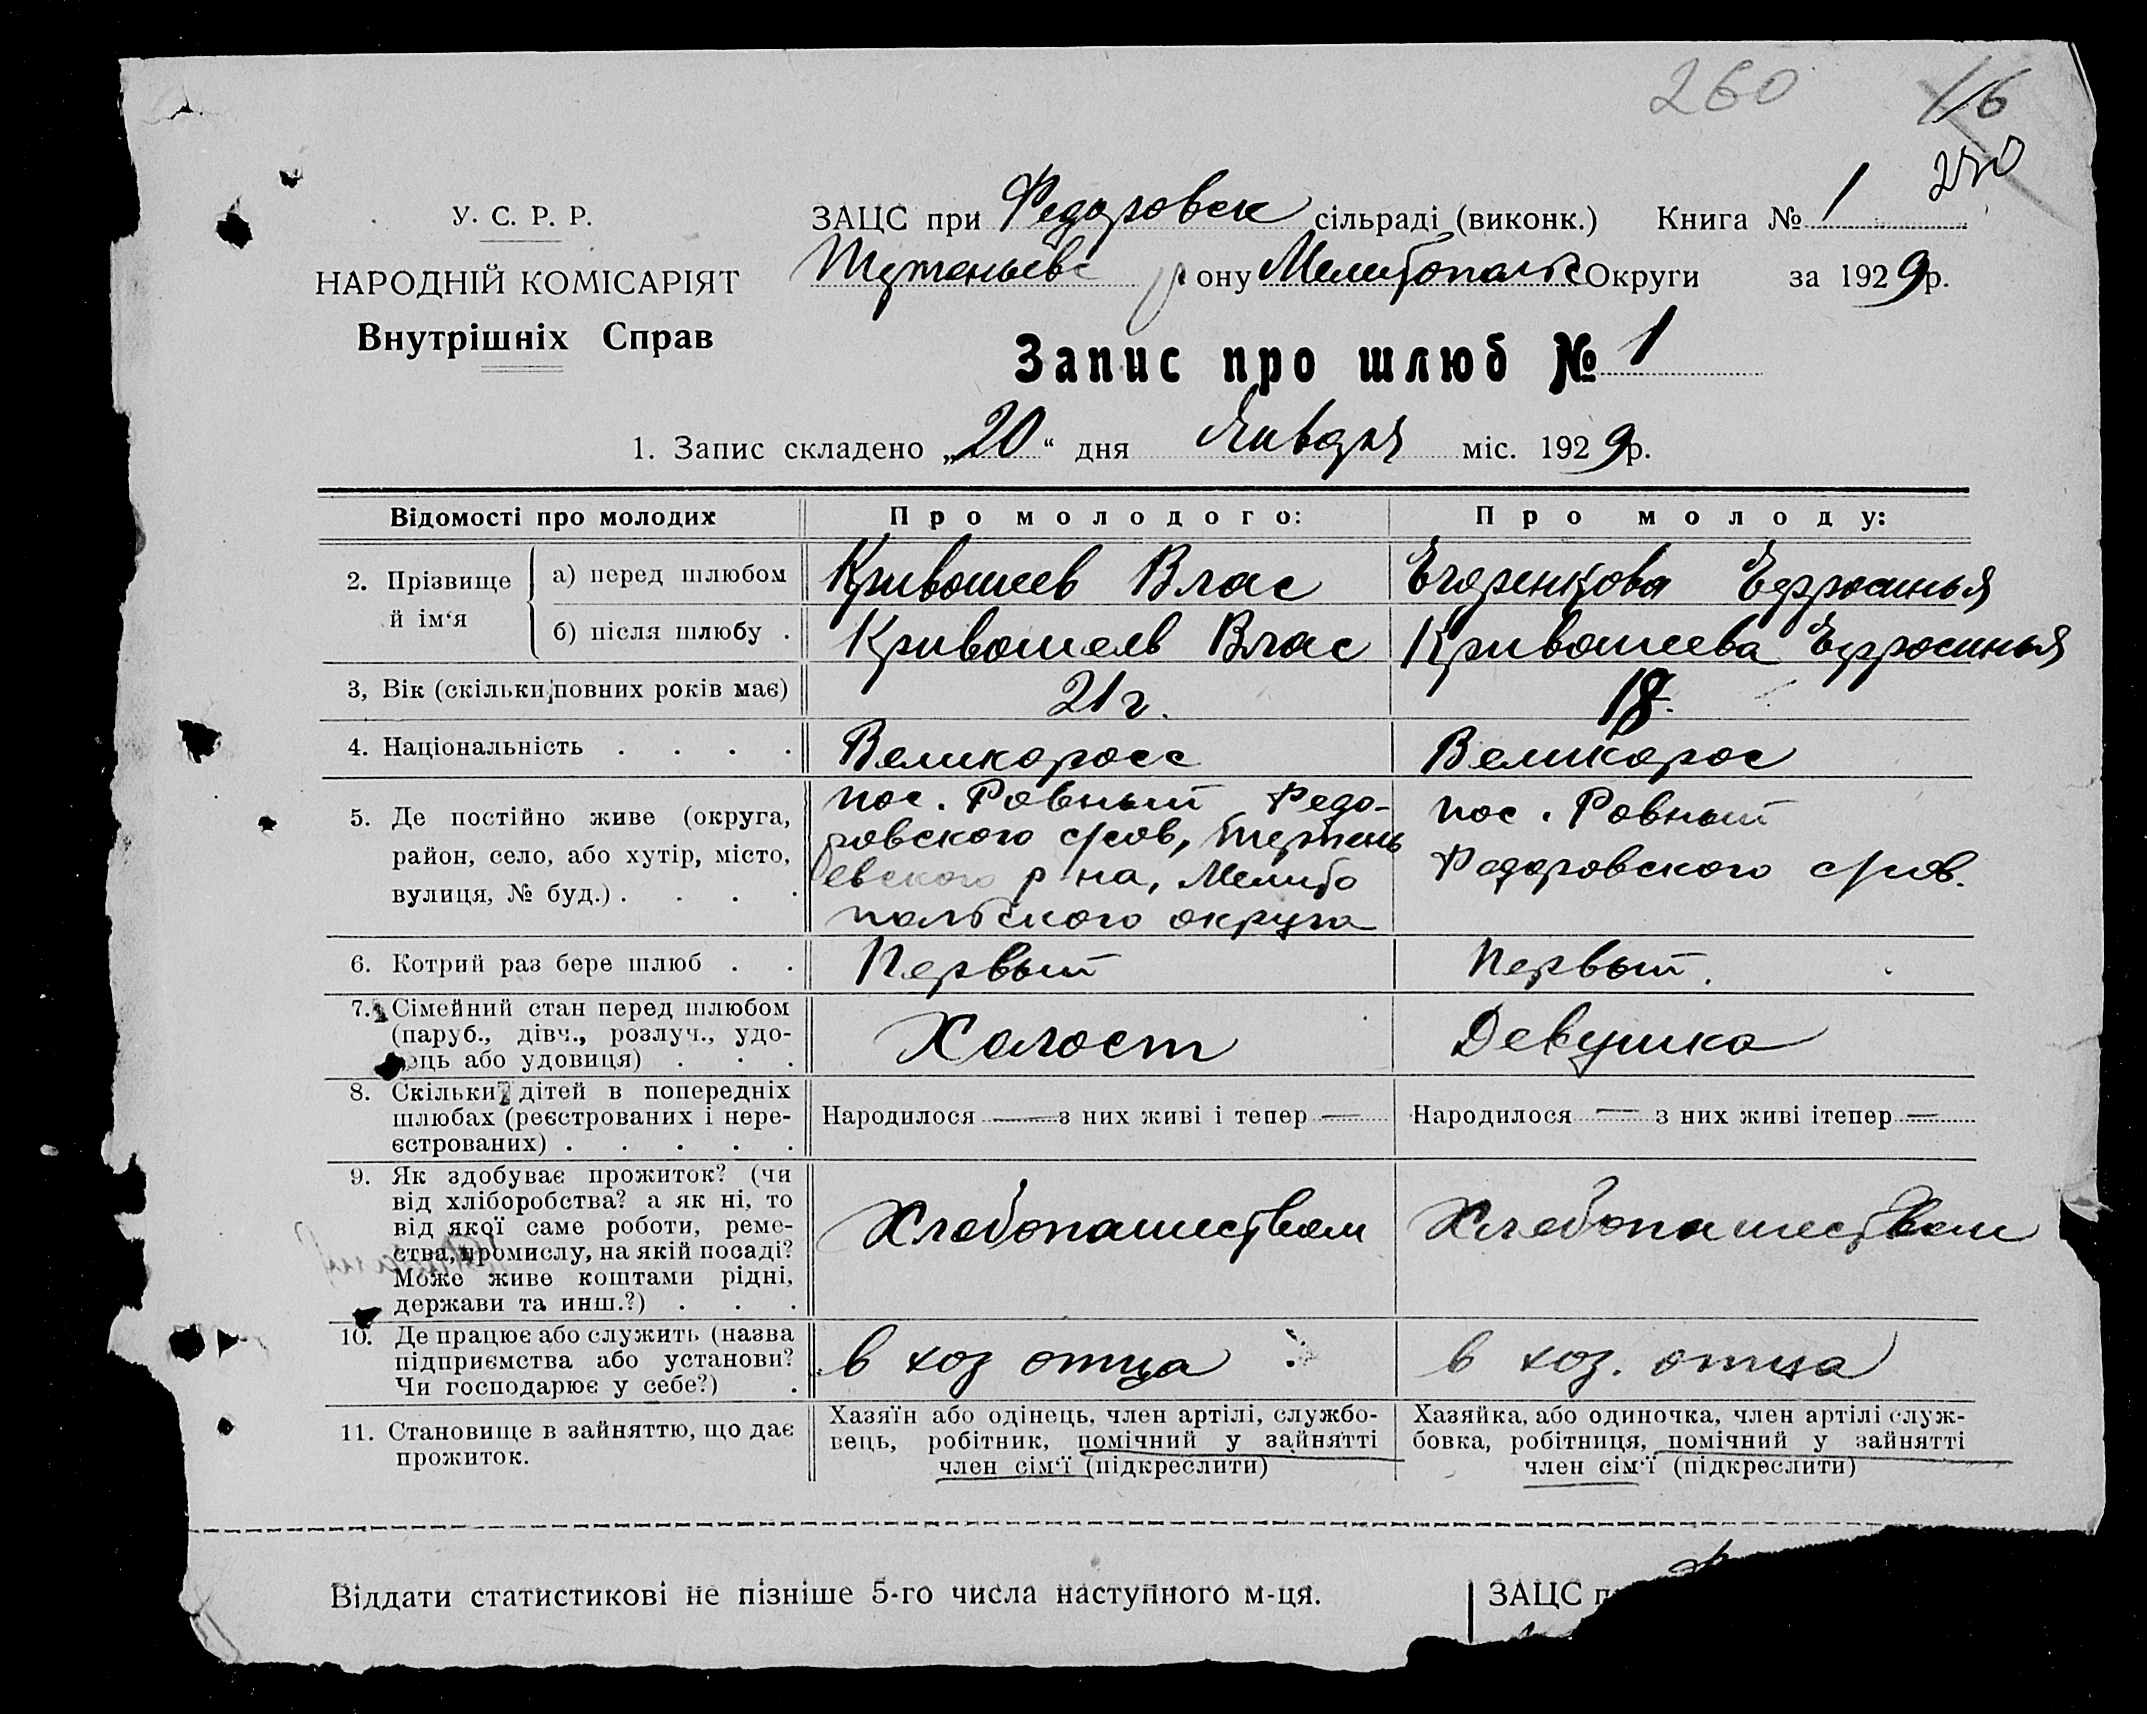 260 16
270
У. С. Р. Р.
ЗАЦС при Федоровск сільраді (виконк.) Книга № 1
НАРОДНІЙ КОМІСАРІЯТ
ону Мелитопольс Округи за 1929р.
Внутрішніх Справ
Запис про шлюб № 1
1. Запис складено „20“ дня Января міс. 1929р.
Відомості про молодих
Про молодого:
Про молоду:
2. Прізвище й ім‘я
а) перед шлюбом
Кривошеев Влас
Егоренкова Ефросинья
б) після шлюбу .
Кривошеев Влас
Кривошеева Ефросинья
3, Вік (скільки повних років має)
21 г.
18.
4. Національність . . . .
Великоросс
Великорос
5. Де постійно живе (округа,
район, село, або хутір, місто,
вулиця, № буд.) . . . .
пос. Ровный Федо-
ровского с/сов,
евского р на, Мелито
польского округа
пос. Ровный
Федоровского с/сов.
6. Котрий раз бере шлюб . .
Первый
Первый.
7. Сімейний стан перед шлюбом
(паруб., дівч., розлуч., удо-
вець або удовиця) . . .
Холост
Девушка
8. Скільки дітей в попередніх
шлюбах (реєстрованих і нере-
єстрованих) . . . . .
Народилося — з них живі і тепер —
Народилося — з них живі ітепер —
9. Як здобуває прожиток? (чи
від хліборобства? а як ні, то
від якої саме роботи, реме-
ства, промислу, на якій посаді?
Може живе коштами рідні,
держави та инш.?) . . .
Хлебопашеством
Хлебопашеством
10. Де працює або служить (назва
підприємства або установи?
Чи господарює у себе?) .
в хоз отца
в хоз. отца
11. Становище в зайняттю, що дає
прожиток.
Хазяїн або одінець, член артілі, службо-
вець, робітник, помічний у зайнятті
член сім‘ї (підкреслити)
Хазяйка, або одиночка, член артілі служ-
бовка, робітниця, помічний у зайнятті
член сім‘ї (підкреслити)
Віддати статистикові не пізніше 5-го числа наступного м-ця.
ЗАЦС п